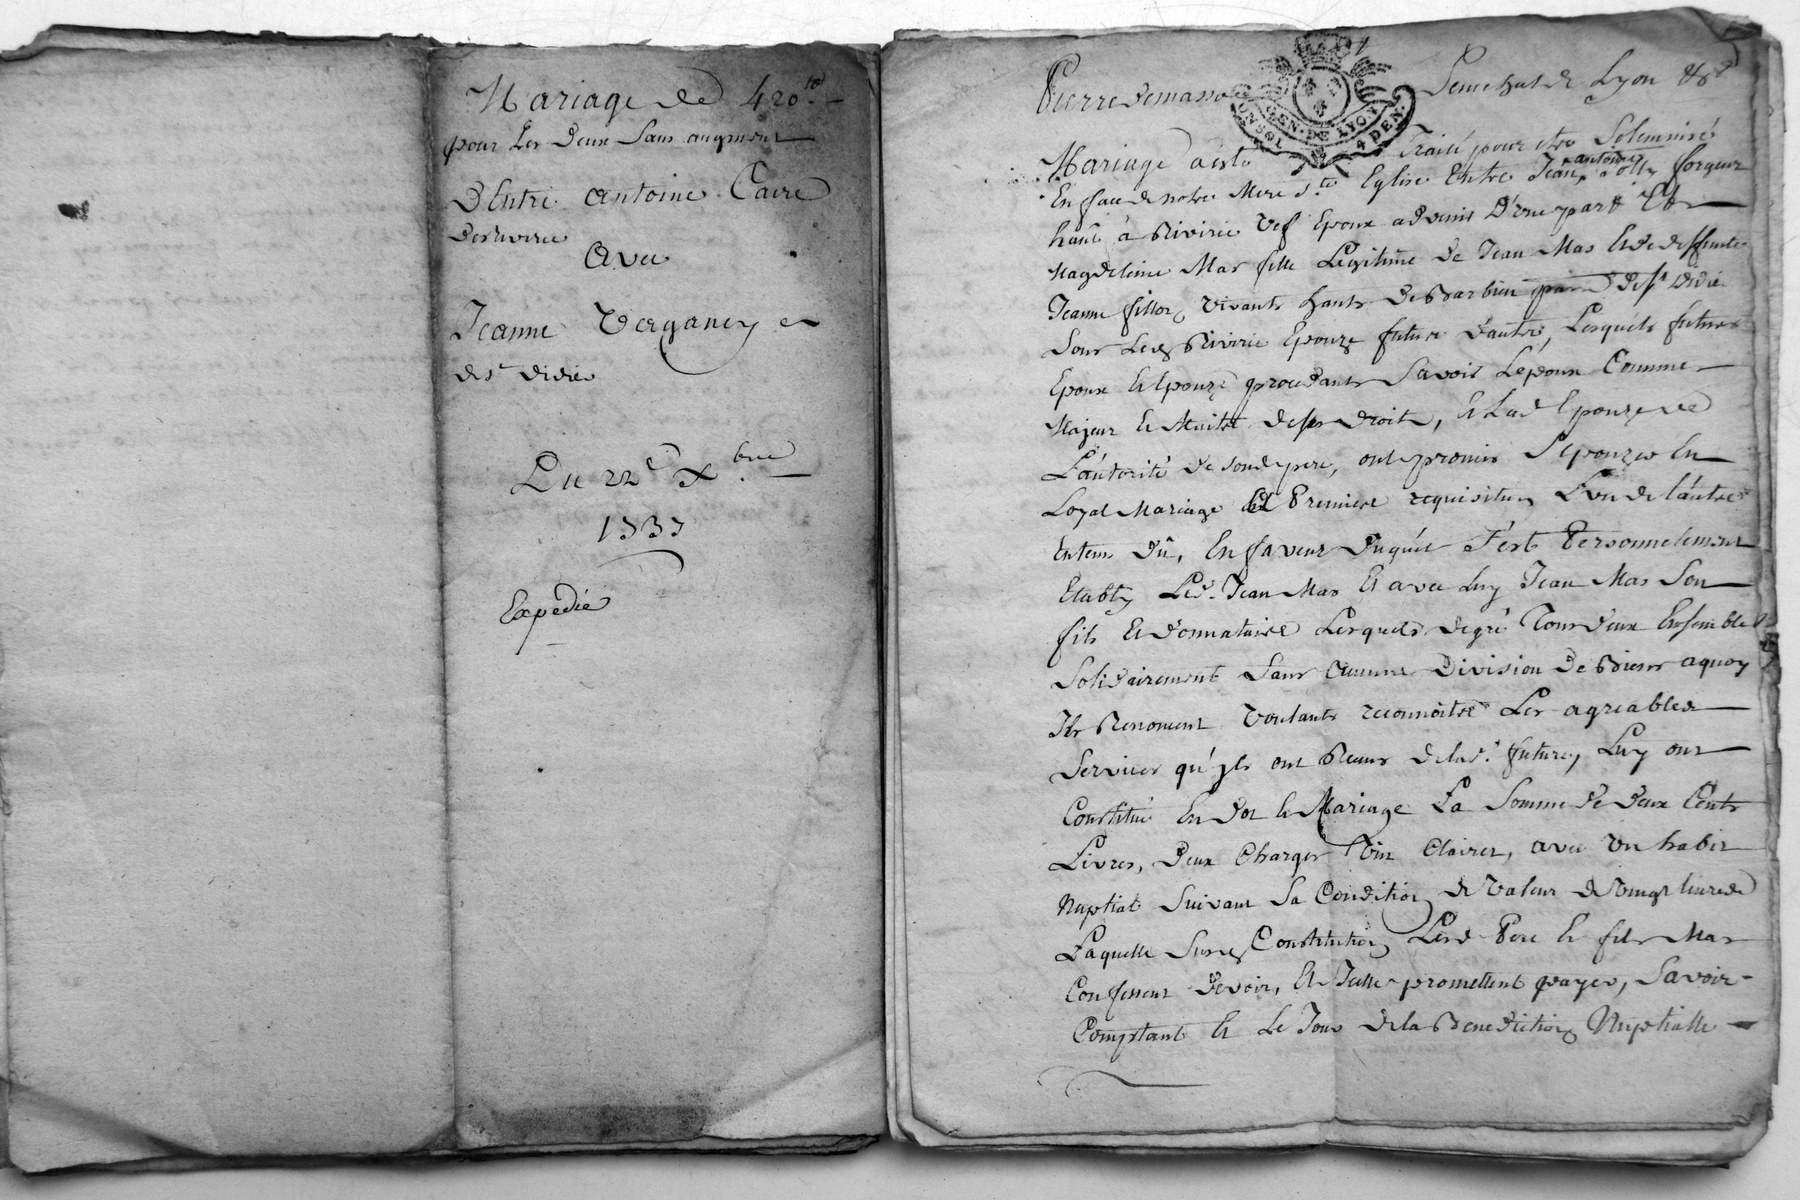 Mariage de 420 tt
pour Les deux Sans augment
D'Entre Antoine Caire
de Riverie
Avec
Jeanne Verganey
de St Didier
Du 22e Xbre
1737
Expédié
Pierre Demasso Senechal de Lyon
GEN. DE LYON
4 DEN.
Mariage a esté Traité pour etre Solemnisés
En face de notre Mere Ste Eglise Entre Jean antoine forgeur
habt à Riverie Vef Epoux advenir D'une part Et
Magdeleine Mas fille Legitime De Jean Mas Et de deffunte
Jeanne fillon, vivants habts De Barbieu par de St Didier
Sous Led Riverie Epouze future D'autre, Lesquels futurs
Epoux Et Epouze procedants Savoir L'epoux Comme
Majeur Et Maitre de ses droits, Et Lad Epouze de
L'autorité De sond pere, ont promis S'epouzer En
Loyal Mariage Premiere requisition L'un de l'autre
Enteur Dû, En faveur Duquél S'est Personnelement
Etably Led. Jean Mas Et avec Luy Jean Mas Son
fils Et donnataire Lesquels degré Tous deux Ensemble
Solidairement Sans Aucune Division De Biens aquoy
Ils Renoncent Voulants reconnoitre Les agreables
Services qu'jls ont Reçus de lad. future, Luy ont
Constitué En dot Et Mariage La Somme de deux Cents
Livres, Deux Charges Vin Clairet, avec Un habit
Nuptial Suivant Sa Condition de Valeur de Vingt livres de
Laquelle Susd Constitution, Lesd Pere Et fils Mas
Confessent Devoir, Et Telle promettent payer, Savoir
Comptant Et Le Jour de la Benediction Nuptialle